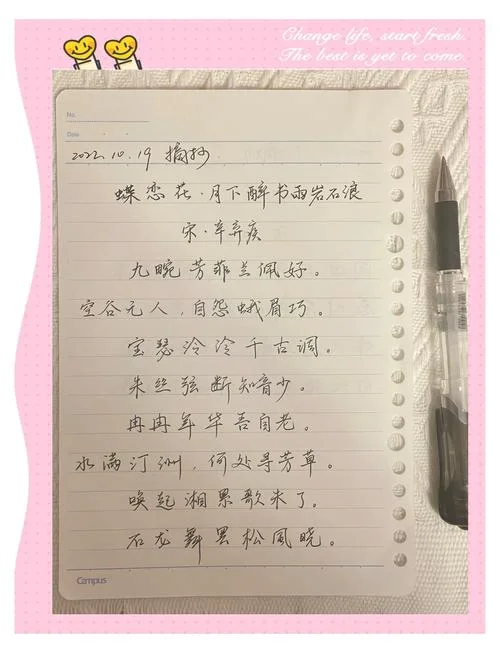 Change life, start fresh.
The best is yet to come.
No.
Date
2022.10.19 摘抄
蝶恋花·月下醉书雨岩石浪
宋·辛弃疾
九畹芳菲兰佩好。
空谷无人,自怨蛾眉巧。
宝瑟泠泠千古调。
朱丝弦断知音少。
冉冉年华吾自老。
水满汀洲,何处寻芳草。
唤起湘累歌未了。
石龙舞罢松风晓。
Campus